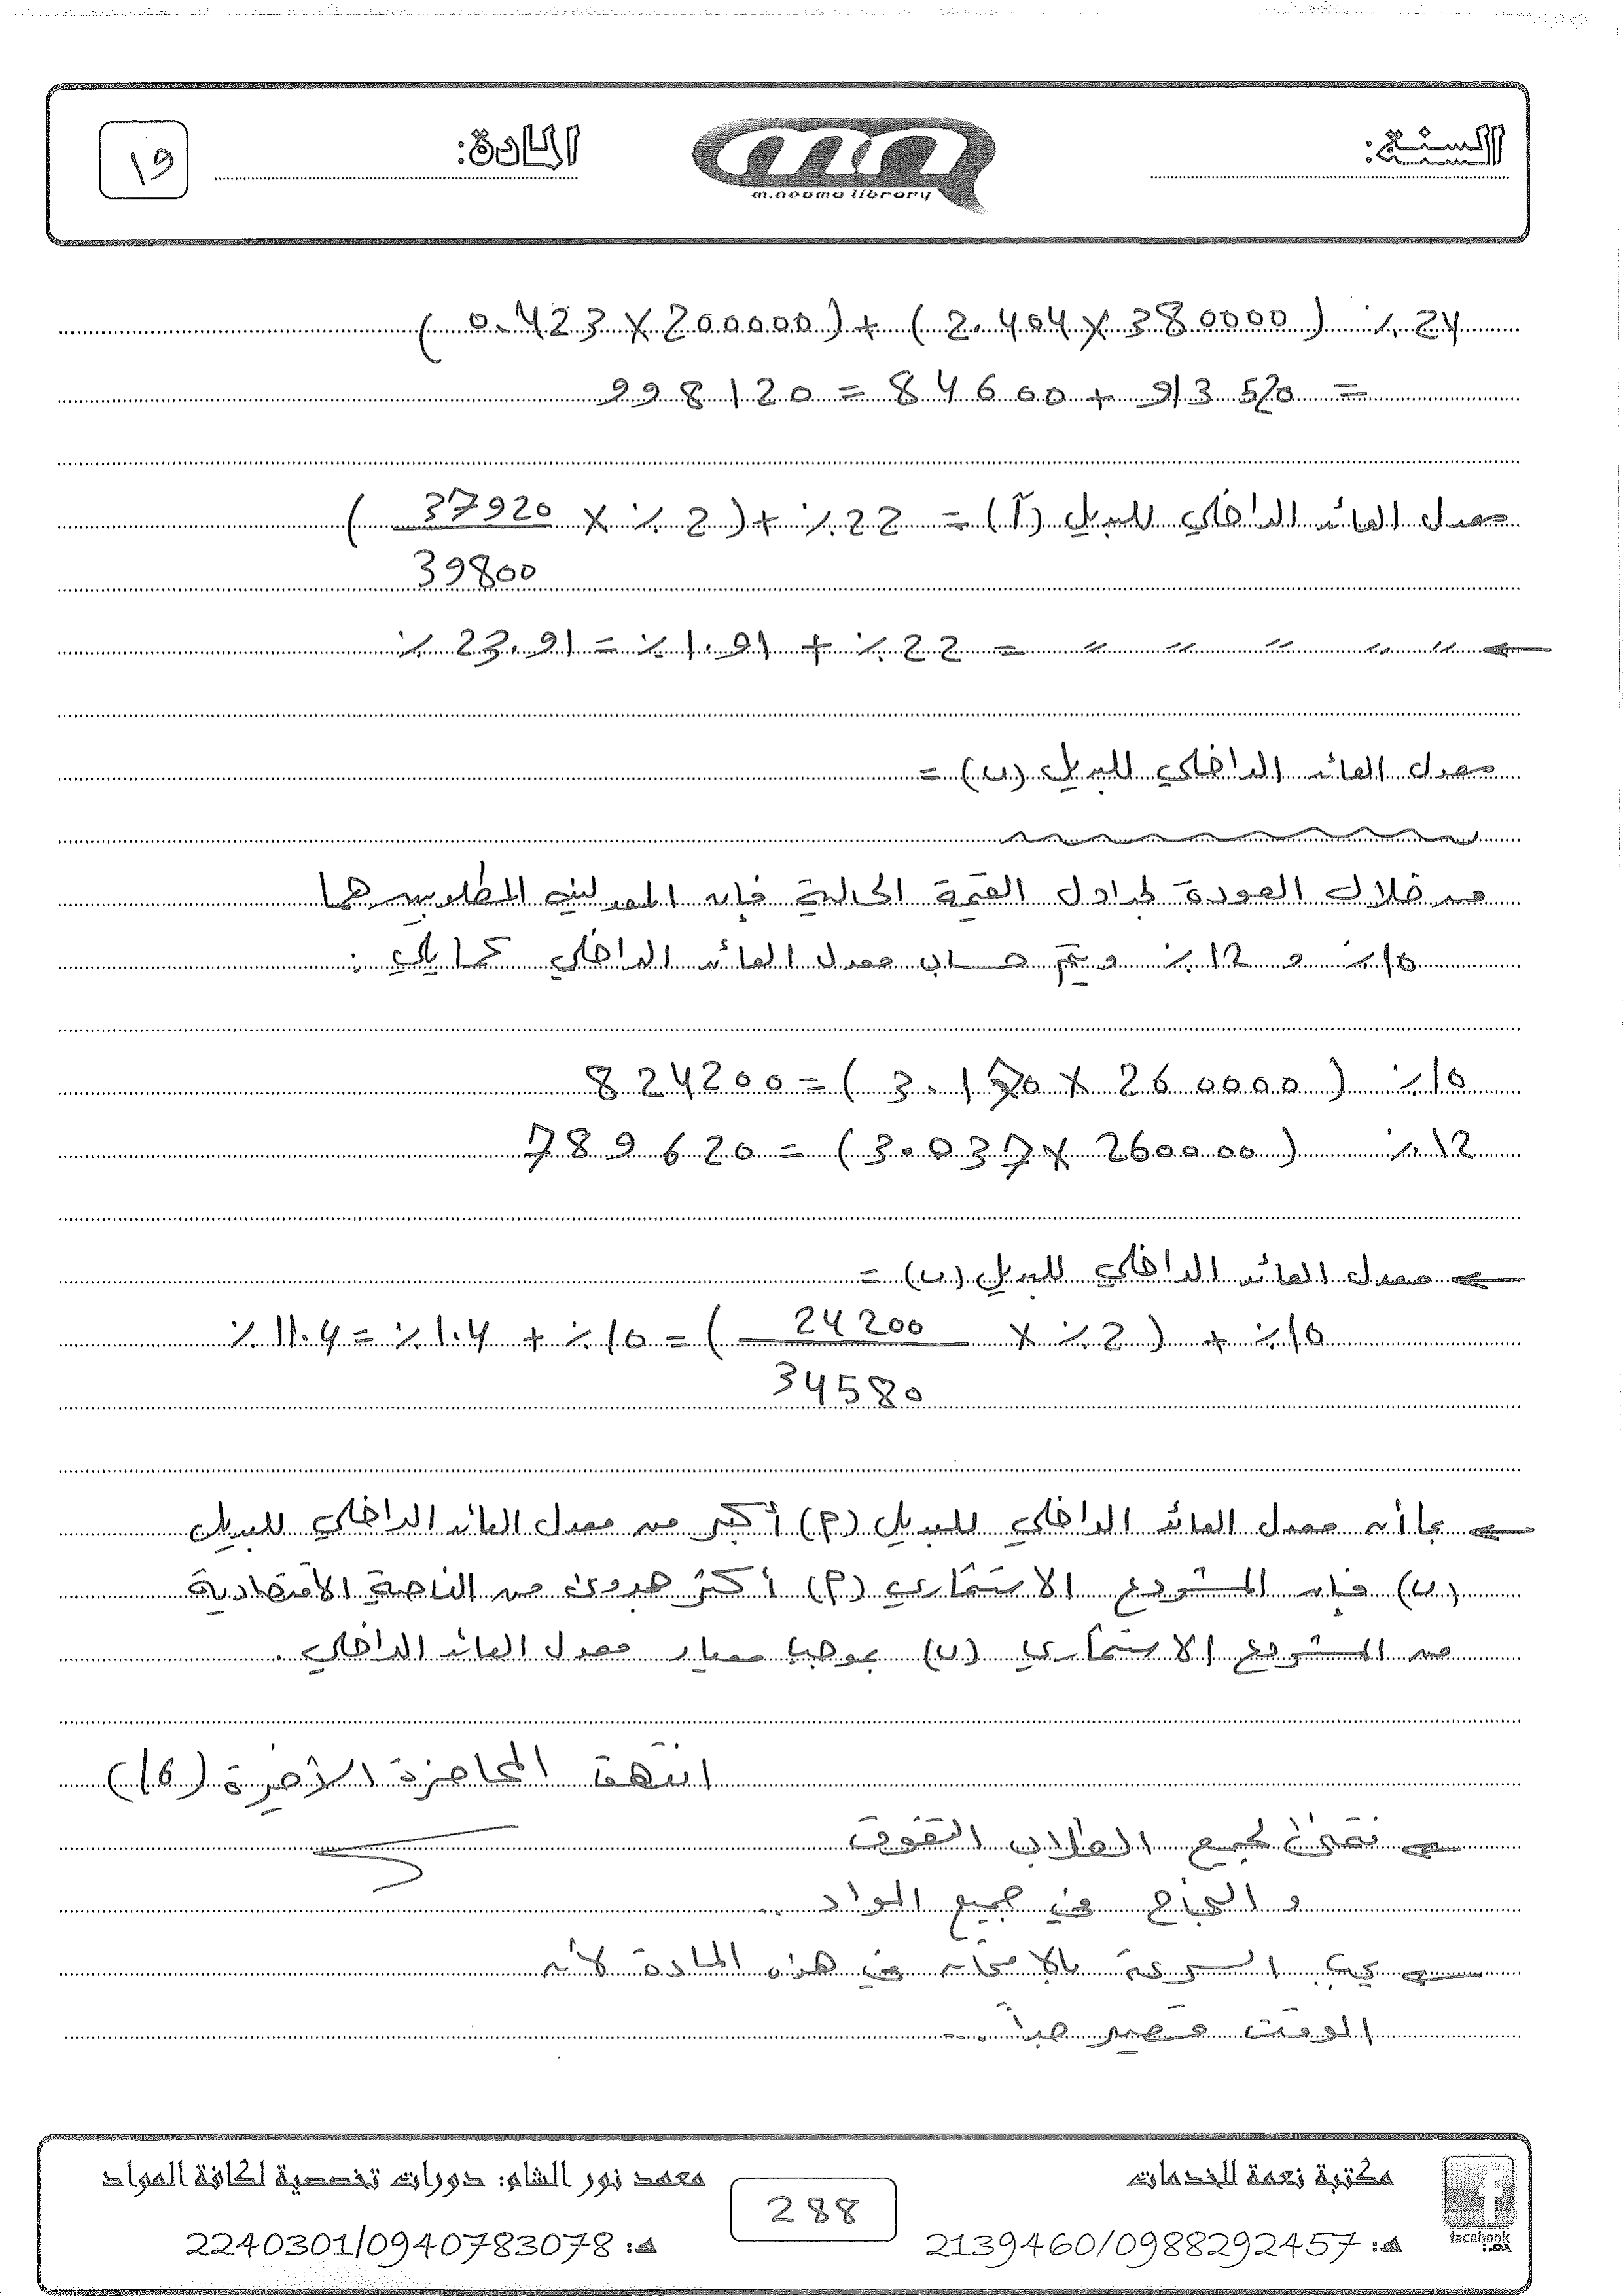 السنة:
m.neama library
المادة:
١٩
24٪ (380000 × 2.404) + (200000 × 0.423)
= 913520 + 84600 = 998120
معدل العائد الداخلي للبديل (آ) = 22٪ + (2٪ × 37920 / 39800)
← // // // // // = 22٪ + 1.91٪ = 23.91٪
معدل العائد الداخلي للبديل (ب) =
من خلال العودة لجداول القيمة الحالية فإن المعدلين المطلوبين هما
10٪ و 12٪ ويتم حساب معدل العائد الداخلي كما يلي :
10٪ (260000 × 3.170) = 824200
12٪ (260000 × 3.037) = 789620
← معدل العائد الداخلي للبديل (ب) =
10٪ + (2٪ × 24200 / 34580) = 10٪ + 1.4٪ = 11.4٪
← بما أن معدل العائد الداخلي للبديل (م) أكبر من معدل العائد الداخلي للبديل
(ب) فإن المشروع الاستثماري (م) أكثر جدوى من الناحية الاقتصادية
من المشروع الاستثماري (ب) بموجب معيار معدل العائد الداخلي .
انتهت المحاضرة الأخيرة (16)
← نتمنى لجميع الطلاب التفوق
و النجاح في جميع المواد ..
← يجب السرعة بالامتحان في هذه المادة لأن
الوقت قصير جداً ...
مكتبة نعمة للخدمات
هـ: 2139460/0988292457
facebook
288
معهد نور الشام: دورات تخصصية لكافة المواد
هـ: 2240301/0940783078